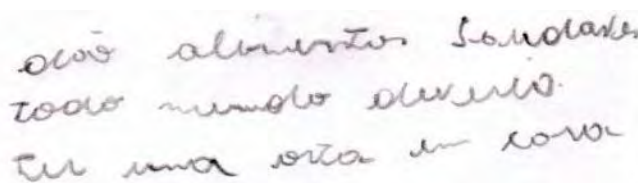 dão alimentos saudaves
todo mundo deveria.
ter uma orta em casa